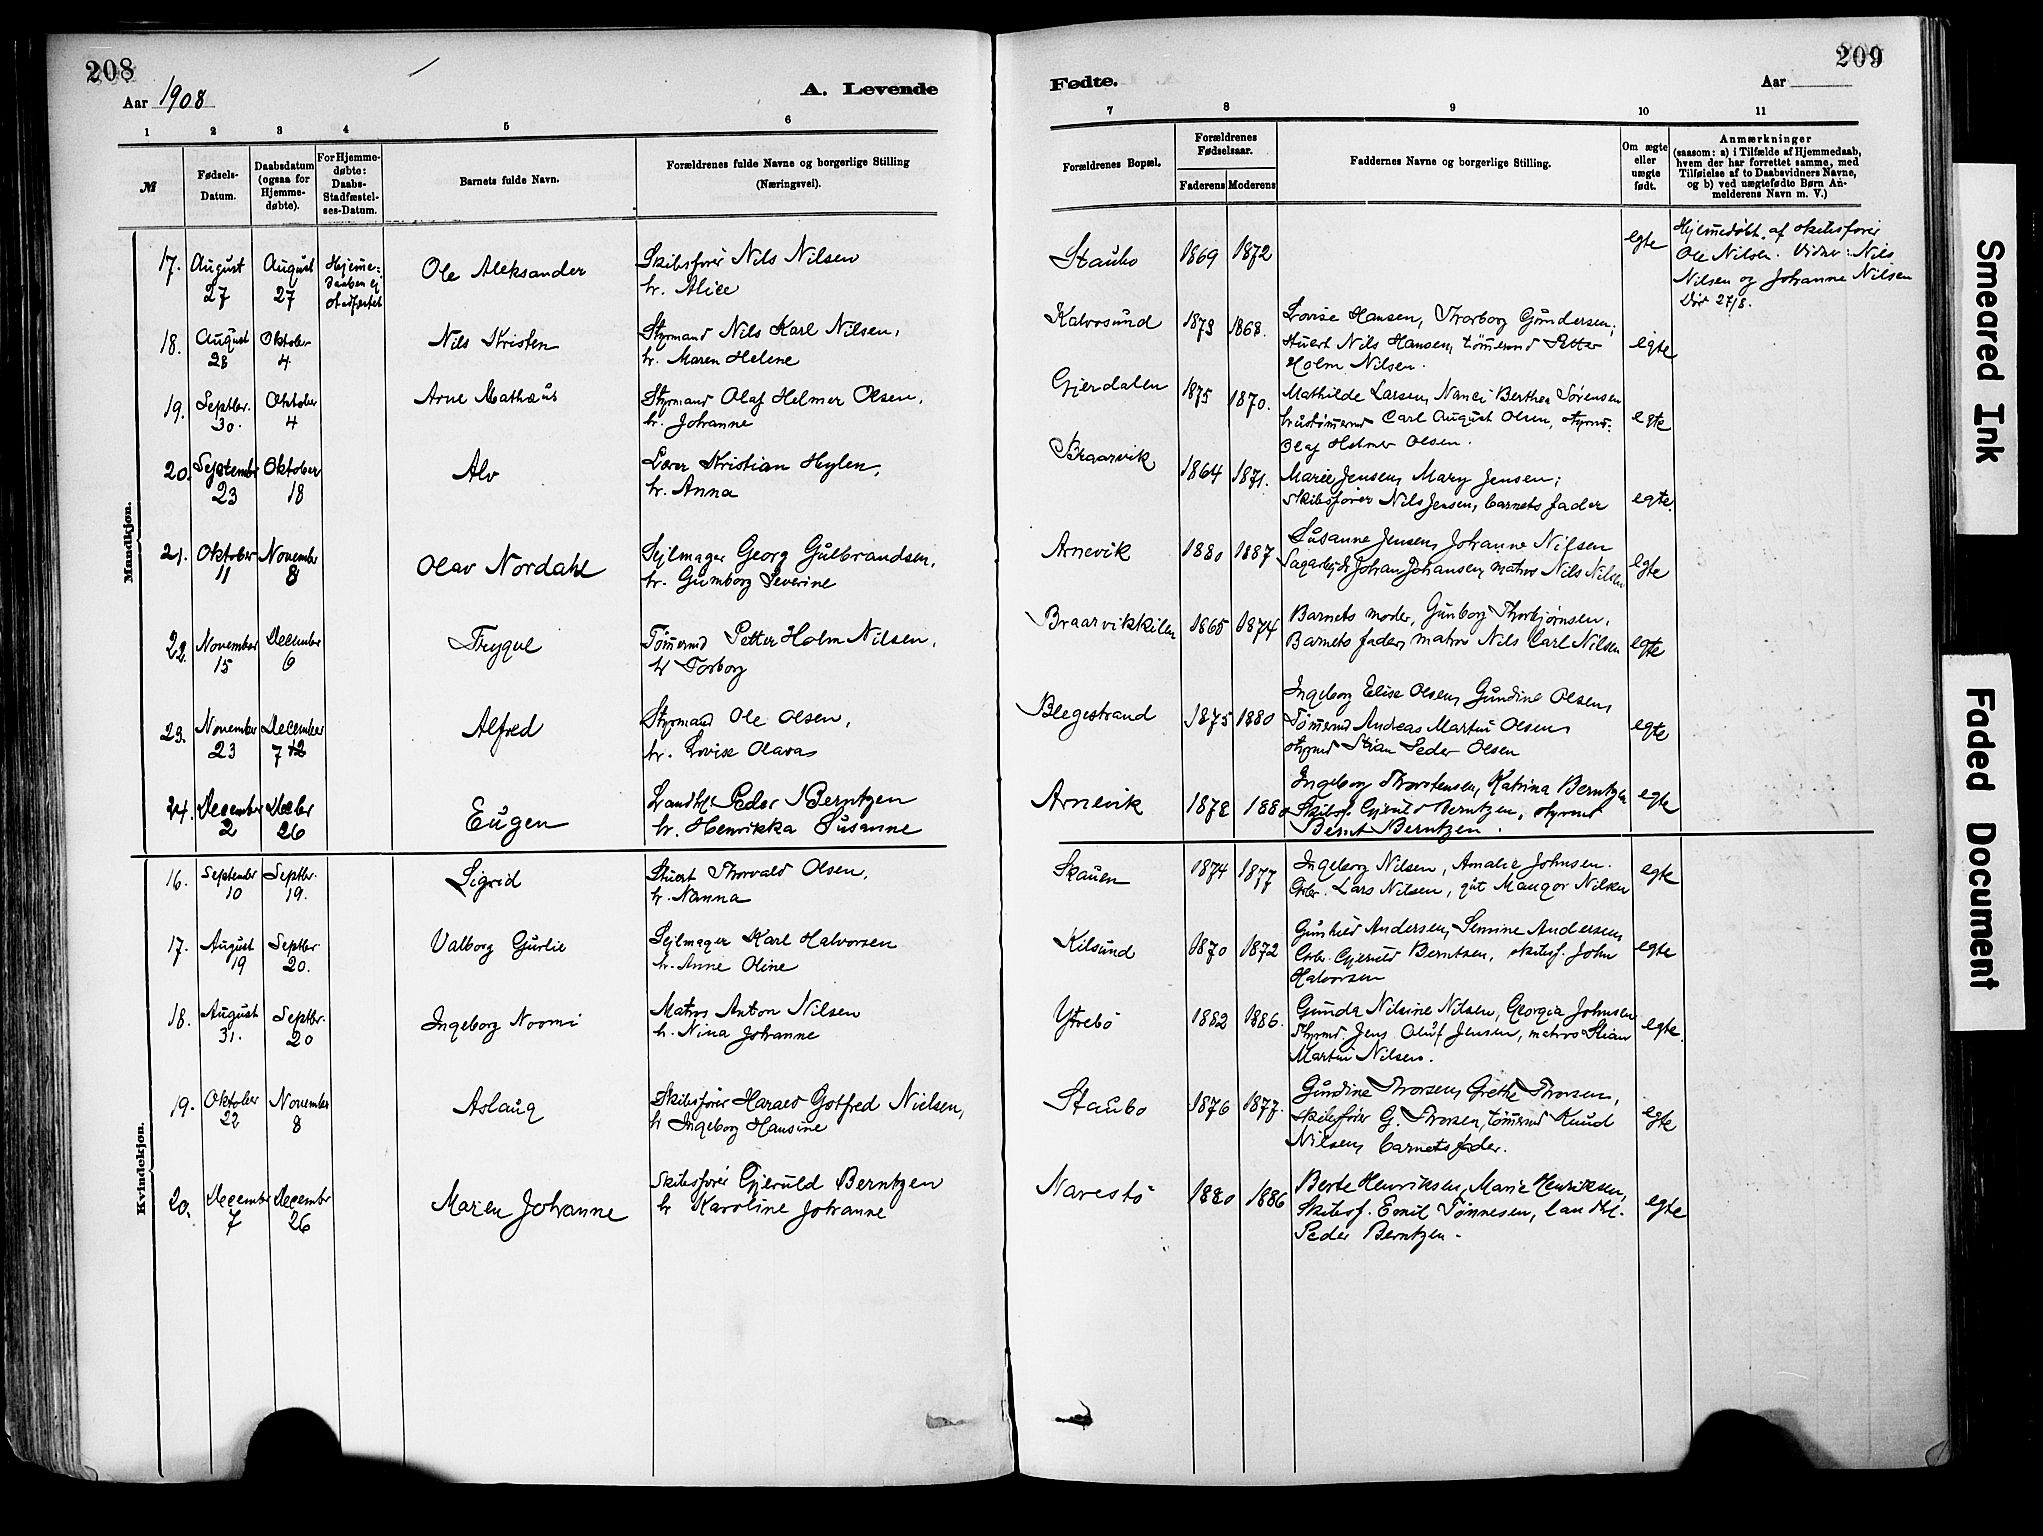 208
Aar 1908
A. Levende
1 2 3 4 5 6
№
Fødsels-
Datum.
Daabsdatum
(ogsaa for
Hjemme-
døbte).
For Hjemme-
døbte:
Daabs-
Stadfæstel-
ses-Datum.
Barnets fulde Navn.
Forældrenes fulde Navne og borgerlige Stilling
(Næringsvei).
Mandkjøn.
17. August 27 August 27 Hjemme-
daaben ej
stadfæstet
Ole Aleksander
Skibsfører Nils Nilsen
h. Alice
18. August 28 Oktober 4
Nils Kristen
Styrmand Nils Karl Nilsen,
h. Maren Helene
19. Septbr. 30. Oktober 4
Arne Mathæus
Styrmand Olaf Helmer Olsen,
h. Johanne
20. September 23 Oktober 18
Alv
Lærer Kristian Hylen,
h. Anna
21. Oktober 11 November 8
Olav Nordahl
Sejlmager Georg Gulbrandsen,
h. Gumborg Severine
22. November 15 December 6
Trygve
Tømmermd Petter Holm Nilsen,
h Torborg
23. November 23 December 7
Alfred
Styrmand Ole Olsen,
h. Lovise Olava
24. December 2 Decbr 26
Eugen
Landh. Peder Berntzen
h. Henrikka Susanne
Kvindekjøn.
16. September 10 Septbr. 19.
Sigrid
Stuert Thorvald Olsen,
h. Nanna
17. August 19 Septbr 20.
Valborg Gurlie
Sejlmager Karl Halvorsen
h. Anne Oline
18. August 31. Septbr. 20
Ingeborg Noomi
Matros Anton Nilsen
h. Nina Johanne
19. Oktober 22 November 8
Aslaug
Skibsfører Harald Gotfred Nielsen,
h Ingeborg Hansine
20. December 7 December 26
Maren Johanne
Skibsfører Gjeruld Berntzen
h Karoline Johanne
209
Fødte.
Aar
7 8 9 10 11
Forældrenes Bopæl.
Forældrenes
Fødselsaar.
Faderens Moderens
Faddernes Navne og borgerlige Stilling.
Om ægte
eller
uægte
født.
Anmærkninger
(saasom: a) i Tilfælde af Hjemmedaab,
hvem der har forrettet samme, med
Tilføielse af to Daabsvidners Navne,
og b) ved uægtefødte Børn An-
melderens Navn m. V.)
Staubo 1869 1872 egte
Hjemmedøbt af skibsfører
Ole Nilsen. Vidner: Nils
Nilsen og Johanne Nilsen
Død 27/8.
Kalvosund 1873 1868.
Lovise Hansen, Thorborg Gundersen;
stuert Nils Hansen, tømmermd Petter
Holm Nilsen.
egte
Gjerdalen 1875 1870.
Mathilde Larsen, Nanci Berthea Sørensen
hustømmermd Carl August Olsen, styrmd.
Olaf Helmer Olsen.
egte
Braarvik 1864 1871.
Marie Jensen, Mary Jensen;
skibsfører Nils Jensen, barnets fader
egte.
Arnevik 1880 1887
Susanne Jensen, Johanne Nilsen
Sagarbejder Johan Johansen, matros Nils Nilsen
egte
Braarvikkilen 1865 1874
Barnets moder, Gunborg Thorbjørnsen,
Barnets fader, matros Nils Carl Nilsen
egte
Blegestrand 1875 1880
Ingeborg Elise Olsen, Gundine Olsen,
Tømmermd Andreas Martin Olsen,
styrmd Stian Peder Olsen
egte
Arnevik 1878 1880
Ingeborg Thorstensen, Katrina Berntzen
Skibsf. Gjeruld Berntzen, styrmd
Bernt Berntzen.
egte
Skauen 1874 1877
Ingeborg Nilsen, Amalie Johnsen.
Lars Nilsen, gut Mangor Nilsen
egte
Kilsund 1870 1872
Gunhild Andersen, Semine Andersen,
Gjeruld Berntsen, skibsf. John
Halvorsen
egte
Ytrebö 1882 1886.
Gunda Nilsine Nilsen, Georgia Johnsen
Styrmd. Jens Oluf Jensen, matros Stian
Martin Nilsen.
egte.
Staubo 1876 1877.
Gundine Thorsen, Grethe Thorsen,
skibsfører G. Thorsen, tømmermd Knud
Nilsen, barnets fader.
egte
Narestö 1880 1886
Berte Henriksen, Marie Henriksen,
Skibsf. Emil Tönnesen, landhl.
Peder Berntzen.
egte
Smeared Ink
Faded Document